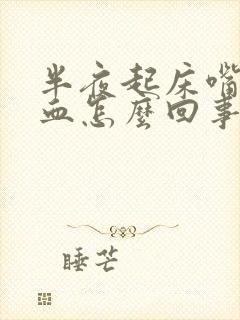 半夜起床嘴
血怎麼回事
睡芒